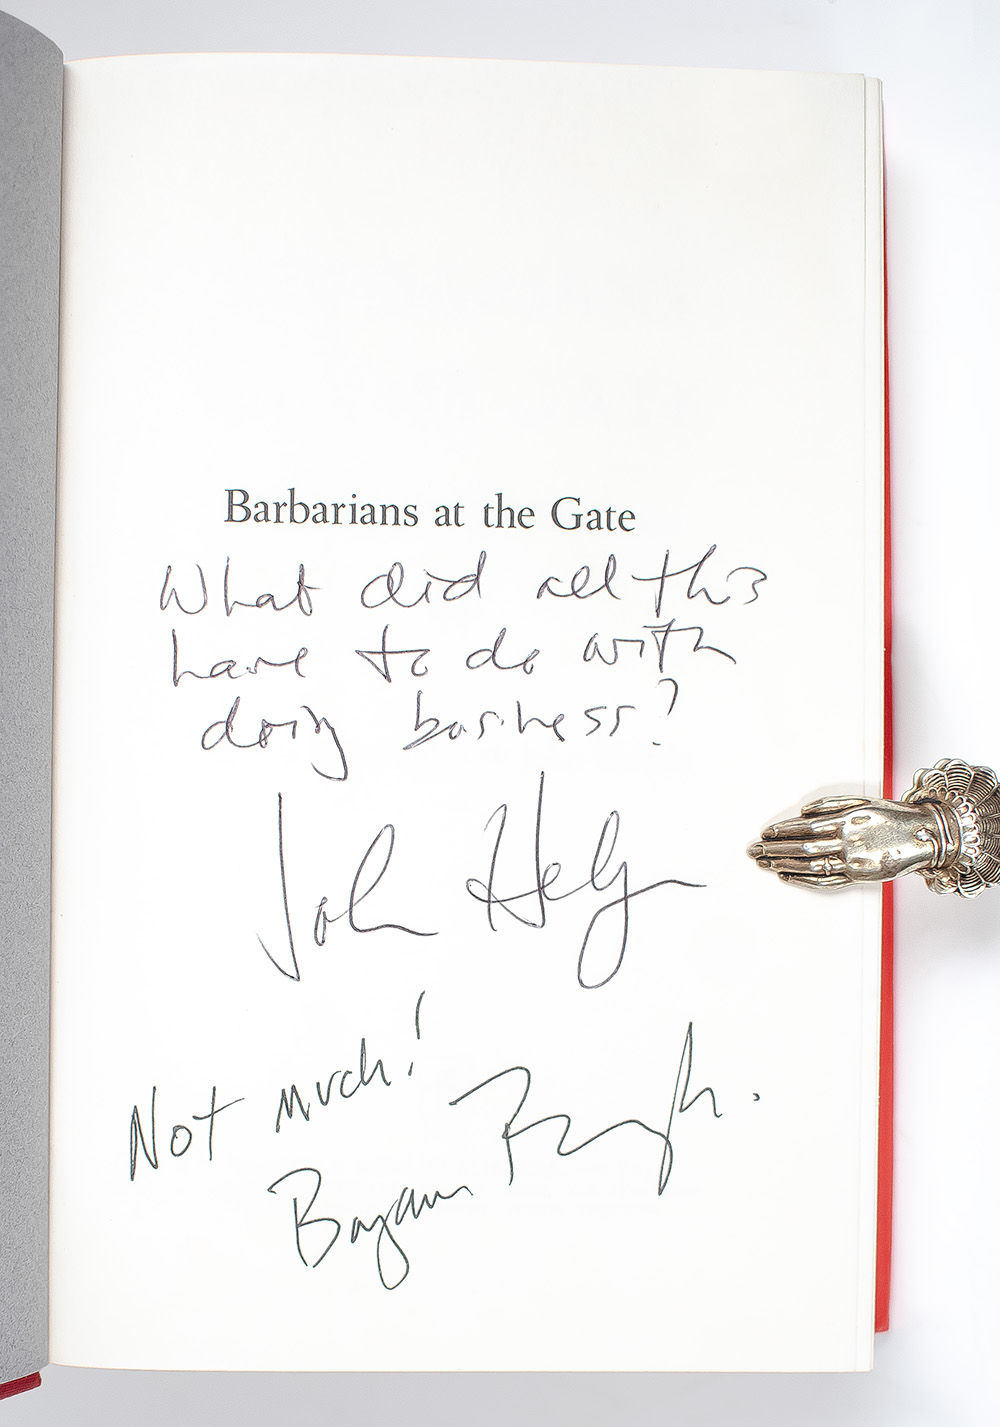 Barbarians at the Gate
What did all this
have to do with
doing business?
John Helyar
Not much!
Bryan Burrough